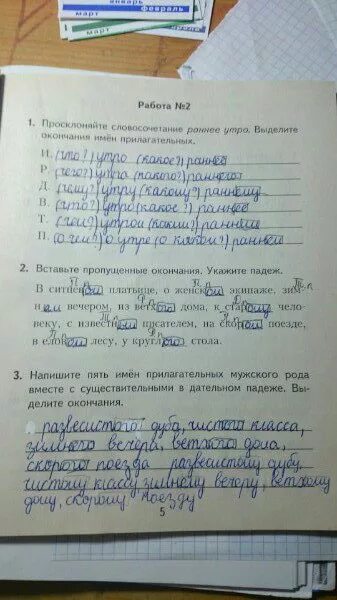 январь
февраль
март
март
Работа №2
1. Просклоняйте словосочетание раннее утро. Выделите
окончания имён прилагательных.
И. (что?) утро (какое?) раннее
Р. (чего?) утра (какого?) раннего
Д. (чему?) утру (какому?) раннему
В. (что?) утро (какое?) раннее
Т. (чем?) утром (каким?) ранним
П. (о чём?) о утре (о каком?) раннем
2. Вставьте пропущенные окончания. Укажите падеж.
П.п. Т.п.
В ситцевом платьице, о женском экипаже, зим-
Р.п. Д.п.
н им вечером, из ветхого дома, к старому чело-
Т.п. П.п.
веку, с известным писателем, на скором поезде,
П.п. Р.п.
в еловом лесу, у круглого стола.
3. Напишите пять имён прилагательных мужского рода
вместе с существительными в дательном падеже. Вы-
делите окончания.
развесистого дуба, чистого класса,
зимнего вечера, ветхого дома,
скорого поезда развесистому дубу,
чистому классу зимнему вечеру, ветхому
дому, скорому поезду
5